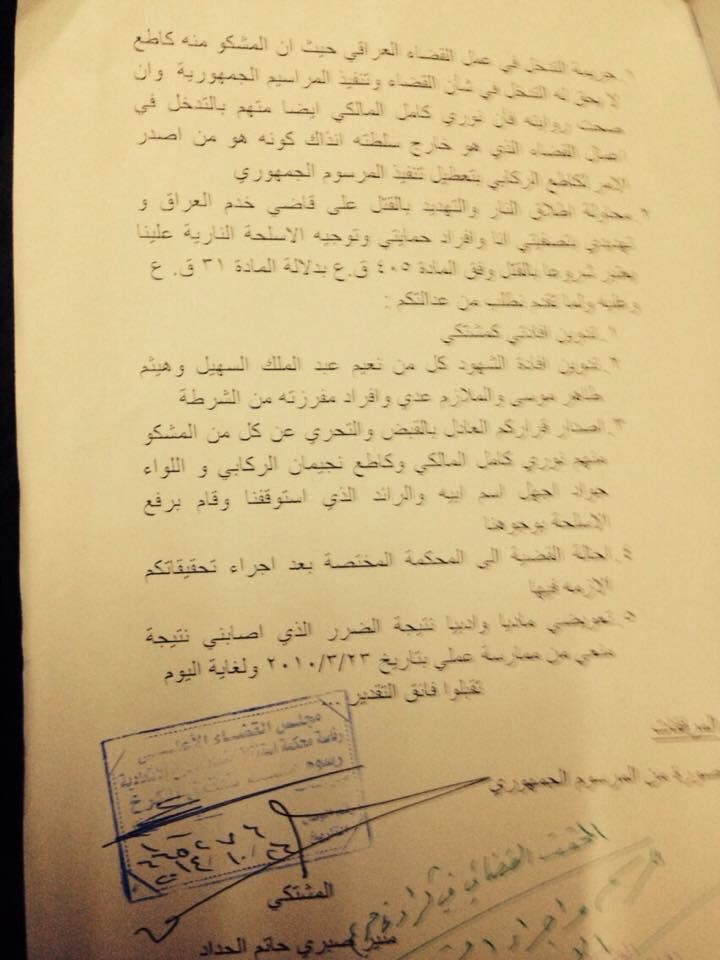 ١. جريمة التدخل في عمل القضاء العراقي حيث ان المشكو منه كاطع
لا يحق له التدخل في شأن القضاء وتنفيذ المراسيم الجمهورية وان
صحت روايته فأن نوري كامل المالكي ايضا متهم بالتدخل في
اعمال القضاء الذي هو خارج سلطته انذاك كونه هو من اصدر
الامر لكاطع الركابي بتعطيل تنفيذ المرسوم الجمهوري
٢. محاولة اطلاق النار والتهديد بالقتل على قاضي خدم العراق و
تهديدي بتصفيتي انا وافراد حمايتي وتوجيه الاسلحة النارية علينا
يعتبر شروعا بالقتل وفق المادة ٤٠٥ ق.ع بدلالة المادة ٣١ ق. ع
وعليه ولما تقدم نطلب من عدالتكم :
١. تدوين افادتي كمشتكي
٢. تدوين افادة الشهود كل من نعيم عبد الملك السهيل وهيثم
طاهر موسى والملازم عدي وافراد مفرزته من الشرطة
٣. اصدار قراركم العادل بالقبض والتحري عن كل من المشكو
منهم نوري كامل المالكي وكاطع نجيمان الركابي و اللواء
جواد اجهل اسم ابيه والرائد الذي استوقفنا وقام برفع
الاسلحة بوجوهنا
٤. احالة القضية الى المحكمة المختصة بعد اجراء تحقيقاتكم
الازمه فيها
٥. تعويضي ماديا وادبيا نتيجة الضرر الذي اصابني نتيجة
منعي من ممارسة عملي بتاريخ ٢٠١٠/٣/٢٣ ولغاية اليوم
تقبلوا فائق التقدير ...
مجلس القضاء الأعلى
رئاسة محكمة استئناف الاتحادية
رسوم الكرخ
صورة من المرسوم الجمهوري
التاريخ ٢٠١٤/١٠/٢٦
المشتكي
منير صبري حاتم الحداد